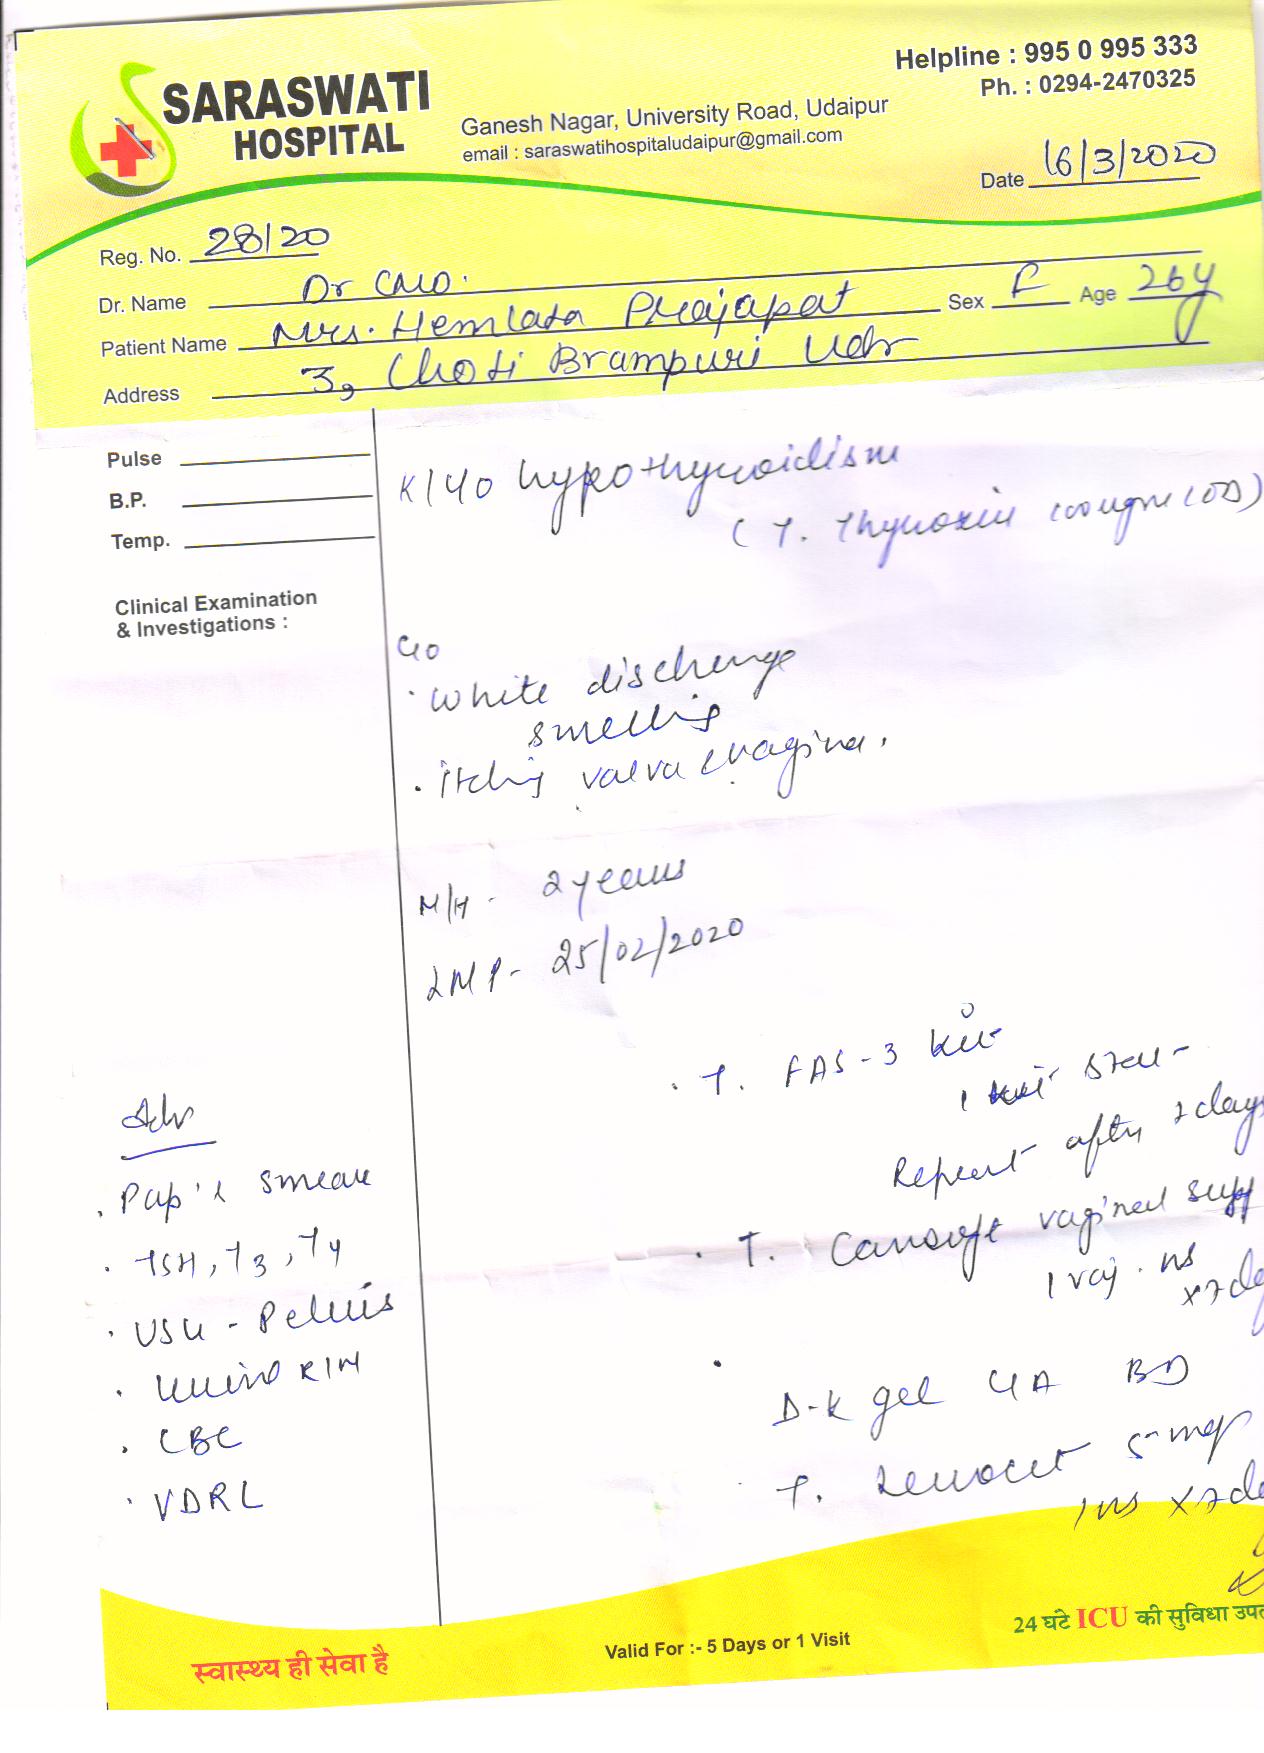 SARASWATI
HOSPITAL
Ganesh Nagar, University Road, Udaipur
email : saraswatihospitaludaipur@gmail.com
Helpline : 995 0 995 333
Ph. : 0294-2470325
Date 16/3/2020
Reg. No. 28/20
Dr. Name Dr CMO.
Sex F Age 26y
Patient Name Mrs. Hemlata Prajapat
Address 3, Choti Brampuri Udr
Pulse
B.P.
Temp.
Clinical Examination
& Investigations :
K/C/O hypothyroidism
( T. Thyroxin 100 ugm (OD)
C/o
· White discharge
smelling
· itching valva & vagina.
M/H - 2 years
LMP - 25/02/2020
· T. FAS-3 kit
1 kit stat
Repeat after 7 days
· T. Cansoft vaginal supp
1 vaj. ns
x7da
· D-K gel L/A BD
· T. Levocet 5 mg
1 ns x7da
Adv
· Pap's smear
· TSH, T3, T4
· USG - Pelvis
· Urine R/M
· CBC
· VDRL
स्वास्थ्य ही सेवा है
Valid For :- 5 Days or 1 Visit
24 घंटे ICU की सुविधा उपल